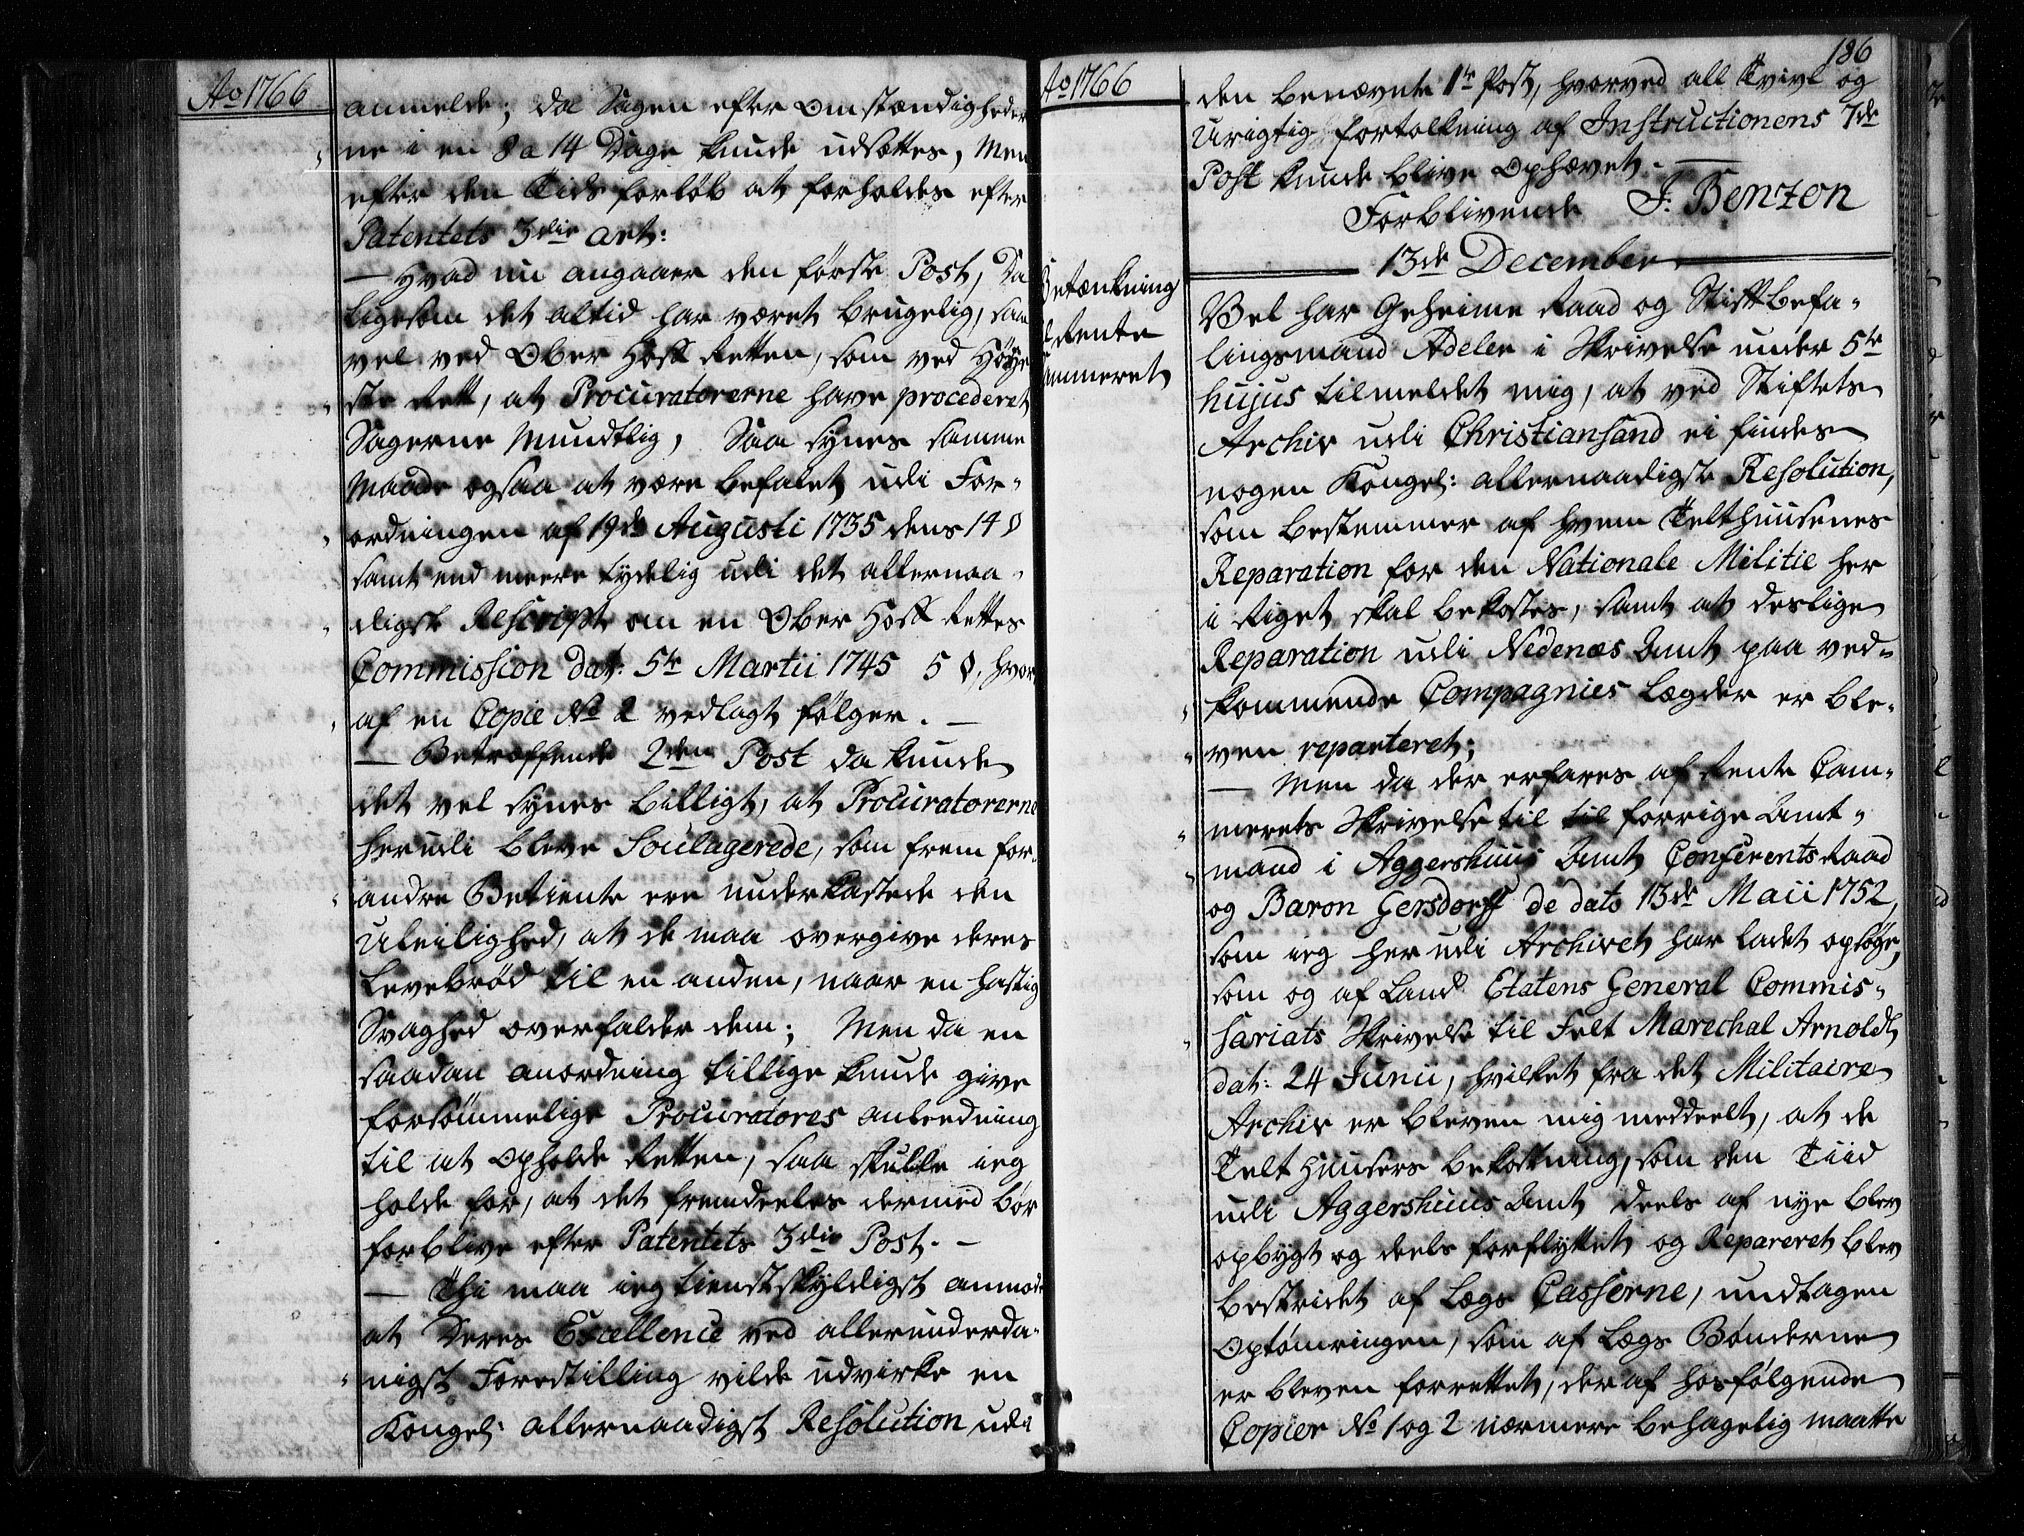 Ao 1766
anmelde; da Sagen efter Omstændigheder
ne i en 8 a 14 Dage kunde udsættes, Men
efter den Tids forløb at forholdes efter
Patentets 3die art:
— Hvad nu angaaer den første Post, Da
ligesom det altid har været brugelig, saa
vel ved Ober Hoff Retten, som ved Høye
ste Rett, at Procuratorerne have procederet
Sagerne Mundtlig, Saa synes samme
Maade ogsaa at være befalet udi For-
ordningen af 19de Augusti 1735 dens 14 §
samt end meere tydelig udi det allernaa-
digste Rescript om en Ober Hoff Rettes
Commission dat: 5te Martii 1745 5 §, hvor
af en Copie No 2 vedlagt følger. —
— Betræffende 2den Post da kunde
det vel synes billigt, at Procuratorerne
herudi bleve Soulagerede, som frem for
andre Betiente ere underkastede den
Uleilighed, at de maa overgive deres
Levebrød til en anden, naar en hastig
Svaghed overfalder dem; Men da en
saadan anordning tillige kunde give
forsømmelige Procuratores anleedning
til at opholde Retten, saa skulle ieg
holde for, at det fremdeeles dermed bør
forblive efter Patentets 3die Post. —
— Thi maa ieg tienstskyldigst anmode
at Deres Excellence ved allerunderda-
nigst Forestilling vilde udvirke en
Kongel: allernaadigst Resolution udi
186
Ao 1766
den benævnte 1te Post, hvorved all Tvivl og
Urigtig fortolkning af Instructionens 7de
Post kunde blive ophævet. —
Forblivende J. Benzon
13de December
Betænkning
t Rente
Kammeret
Vel har Geheime Raad og Stiftbefa-
lingsmand Adeler i Skrivelse under 5te
hujus tilmeldet mig, at ved Stiftets
Archiv udi Christiansand ei findes
nogen Kongel: allernaadigste Resolution,
som bestemmer af hvem Telthuusenes
Reparation for den Nationale Militie her
i Riget skal bekostes, samt at deslige
Reparation udi Nedenæs Amt paa ved-
kommende Compagnies Lægder er ble-
ven reparteret;
— Men da der erfares af Rente Cam-
merets Skrivelse til til forrige Amt-
mand i Aggershuus Amt Conferents Raad
og Baron Gersdorff de dato 13de Maii 1752,
som ieg her udi Archivet har ladet opsøge,
som og af Land Etatens General Commis-
sariats Skrivelse til Felt Marechal Arnoldt
dat: 24 Junii, hvilket fra det Militaire
Archiv er bleven mig meddeelt, at de
Telt Huusers bekostning, som den Tiid
udi Aggershuus Amt deels af nye blev
opbygt og deels forflyttet og Repareret blev
bestridet af Lægs Casserne, undtagen
Optømringen, som af Lægs Bønderne
er bleven forrettet, deraf hosfølgende
Copier No 1 og 2 nærmere behagelig maatte